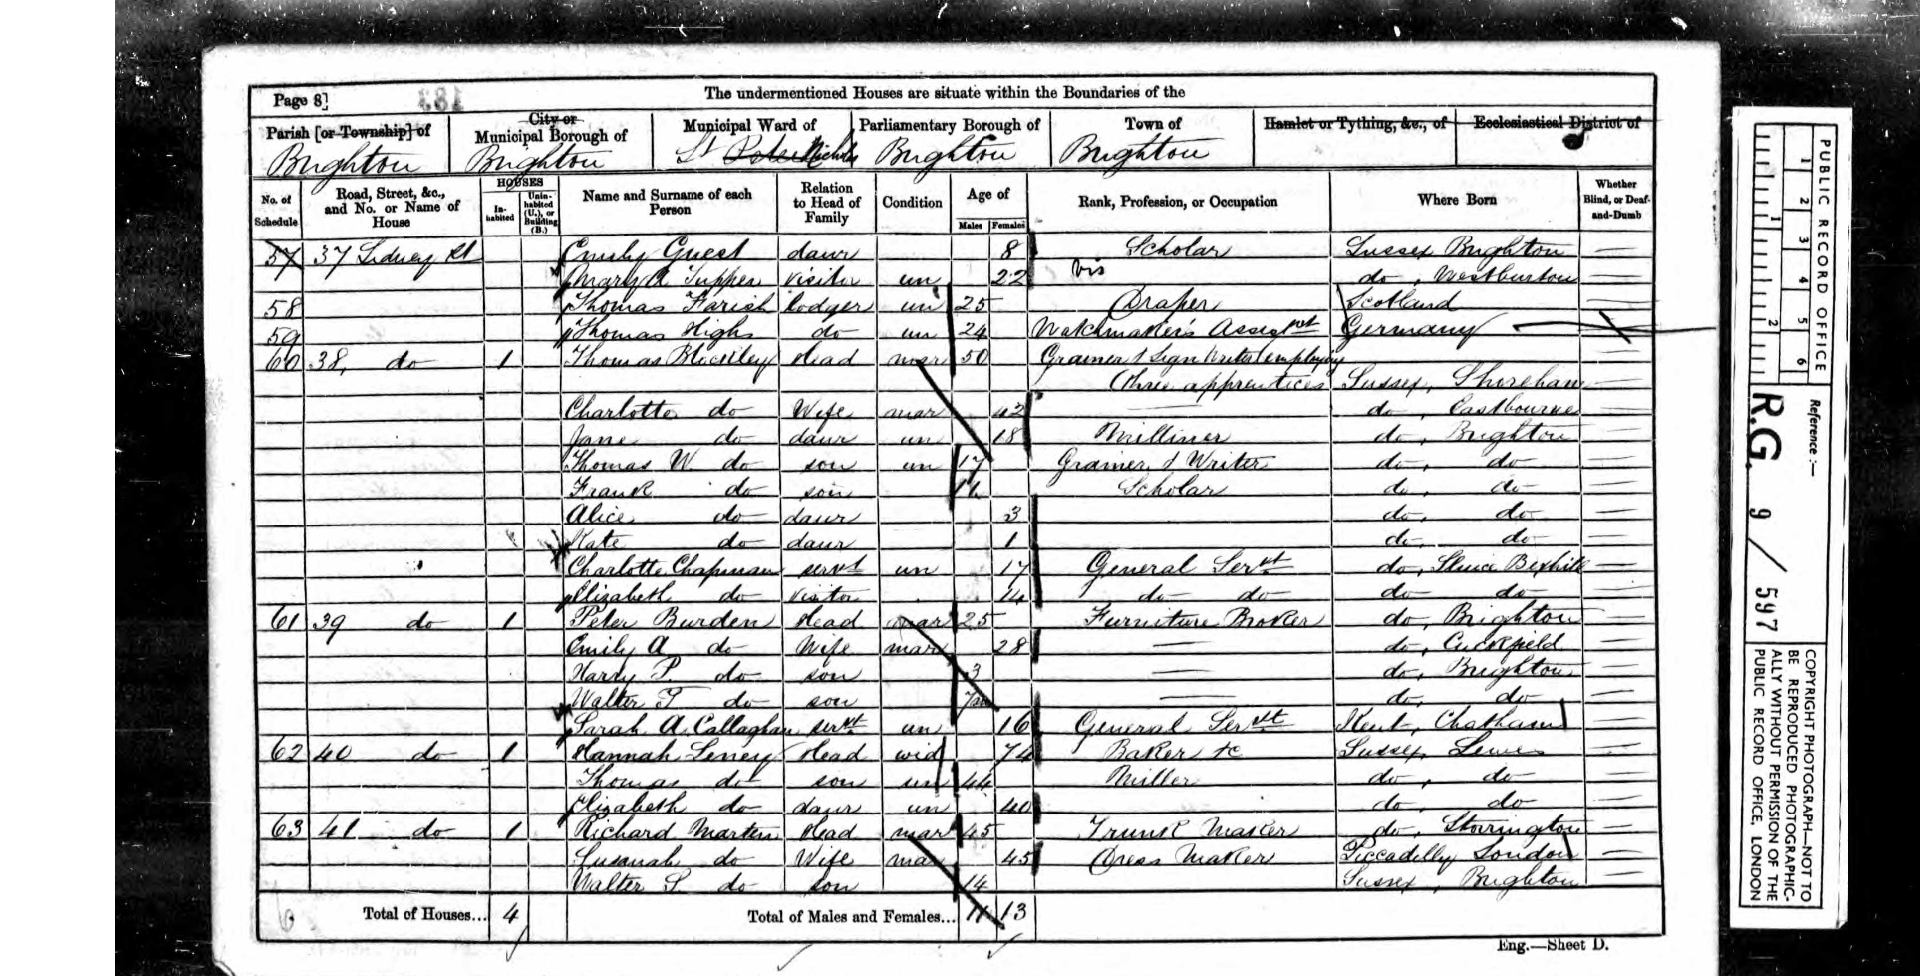 Page 8] 183
The undermentioned Houses are situate within the Boundaries of the
Parish [or Township] of City or Municipal Borough of Municipal Ward of Parliamentary Borough of Town of Hamlet or Tything, &c., of Ecclesiastical District of
Brighton Brighton St Peter Nicholas Brighton Brighton
No. of Schedule Road, Street, &c., and No. or Name of House HOUSES Inhabited Uninhabited (U.), or Building (B.) Name and Surname of each Person Relation to Head of Family Condition Age of Males Females Rank, Profession, or Occupation Where Born Whether Blind, or Deaf-and-Dumb
57 37 Sidney St Emily Guest daur 8 Scholar Sussex Brighton
Mary A Tupper visitor un 22 vis do, Westburton
58 Thomas Farish lodger un 25 Draper Scotland
59 Thomas Highs do un 24 Watchmaker's Germany
60 38, do 1 Thomas Head mar 50 Grainer & Sign Writer employing
three apprentices Sussex, Shoreham
Charlotte do Wife mar 42 — do, Eastbourne
Jane do daur un 18 Milliner do, Brighton
Thomas W. do son un 17 Grainer & Writer do, do
Frank do son Scholar do, do
Alice do daur 3 do, do
Kate do daur 1 do, do
Charlotte Chapman servt un 17 General Servt do, Sluice Bexhill
Elizabeth do visitor 14 do do do do
61 39 do 1 Peter Burden Head mar 25 Furniture Broker do, Brighton
Emily A do Wife mar 28 — do, Cuckfield
Harry P. do son 3 — do, Brighton
Walter T do son — do, do
Sarah A. Callaghan servt un 16 General Servt Kent, Chatham
62 40 do 1 Hannah Leney Head wid 74 Baker &c Sussex, Lewes
Thomas do son un 44 Miller do, do
Elizabeth do daur un 40 do, do
63 41 do 1 Richard Marten Head mar 45 Trunk Maker do, Storrington
Susanah do Wife mar 45 Dress Maker Piccadilly London
Walter S. do son 14 Sussex, Brighton
Total of Houses... 4 Total of Males and Females... 11 13
Eng.—Sheet D.
PUBLIC RECORD OFFICE
1 2 3 4 5 6
1 2
Reference:—
R.G. 9 / 597
COPYRIGHT PHOTOGRAPH—NOT TO BE REPRODUCED PHOTOGRAPHICALLY WITHOUT PERMISSION OF THE PUBLIC RECORD OFFICE, LONDON